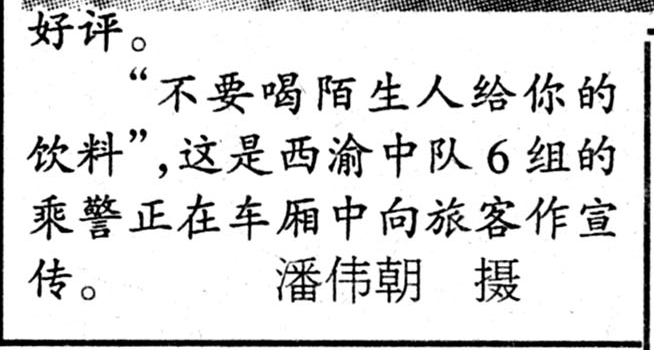 好评。
“不要喝陌生人给你的
饮料”,这是西渝中队6组的
乘警正在车厢中向旅客作宣
传。 潘伟朝 摄